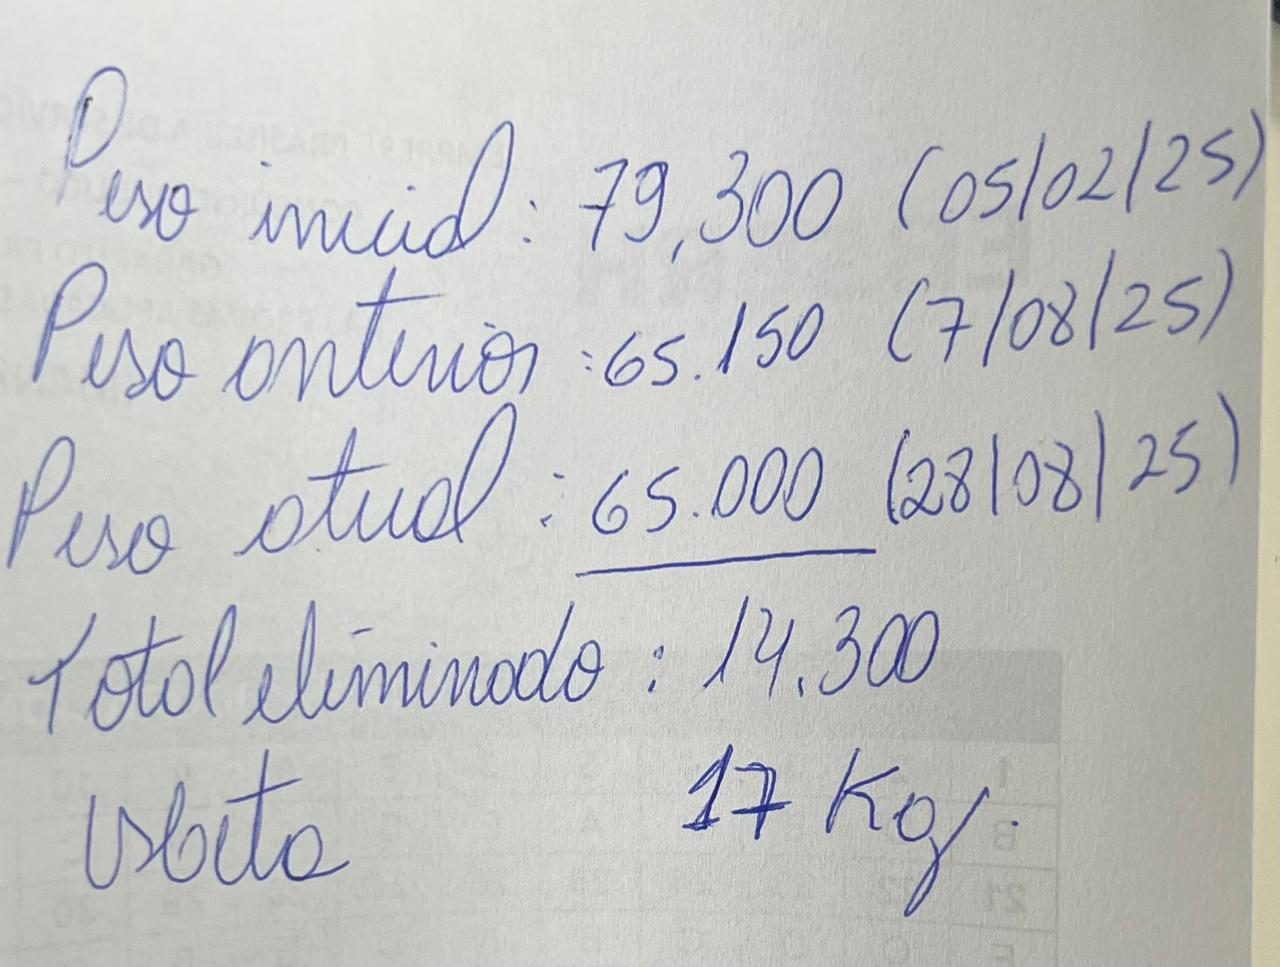 Peso inicial: 79,300 (05/02/25)
Peso anterior: 65.150 (7/08/25)
Peso atual: 65.000 (28/08/25)
Total eliminado: 14.300
17 Kg.